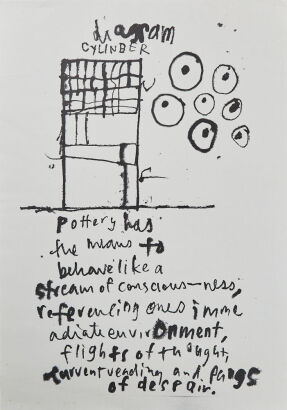 diagram
CYLINBER
pottery has
the means to
behave like a
stream of conscious-ness,
referencing ones imme
adiate environment,
flights of thought,
current reading and pangs
of despair.